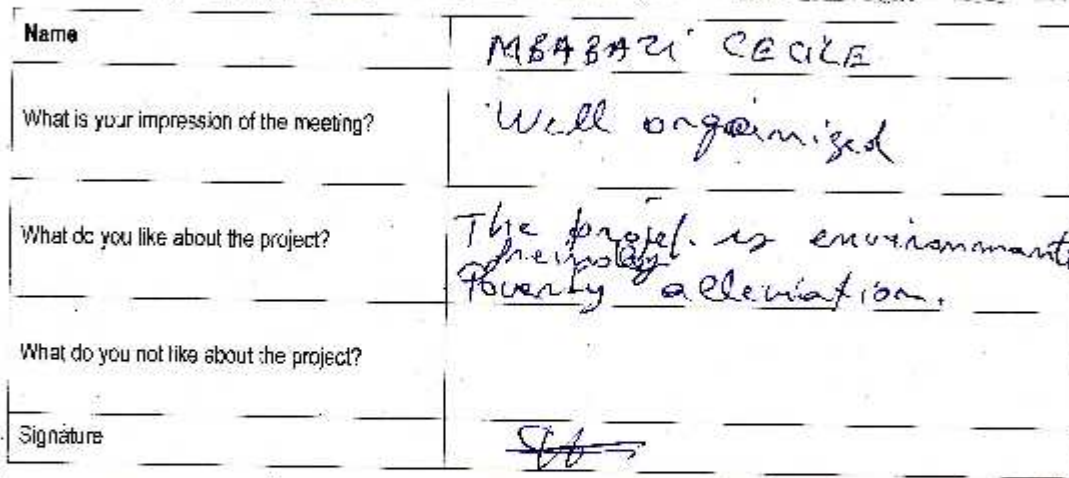 Name MBABAZI CECILE
What is your impression of the meeting? Well organized
What do you like about the project? The projet. is environmant
freindly
Poverty alleviation.
What do you not like about the project?
Signature